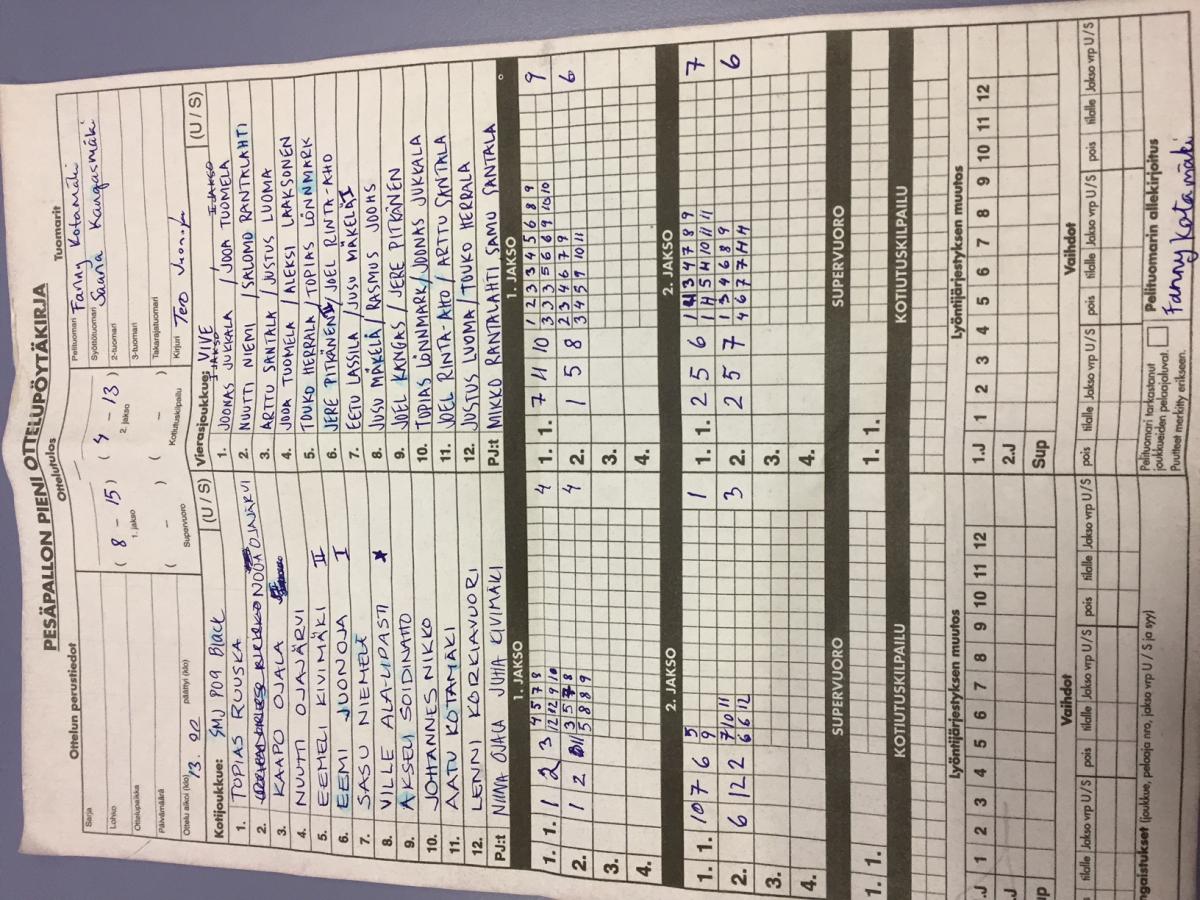 PESÄPALLON PIENI OTTELUPÖYTÄKIRJA
Ottelun perustiedot
Sarja
Lohko
Ottelupaikka
Päivämäärä
Ottelu alkoi (klo) 13.20 päättyi (klo)
Ottelutulos
( 8 - 15 ) ( 4 - 13 )
1. jakso 2. jakso
( - ) ( - )
Supervuoro Kotiutuskilpailu
Tuomarit
Pelituomari Fanny Kotamäki
Syöttötuomari Sanna Kangasmäki
2-tuomari
3-tuomari
Takarajatuomari
Kirjuri Tero
Kotijoukkue: SMJ 809 Black (U / S)
1. TOPIAS RUUSKA
2. NOOA OJAJÄRVI
3. KAAPO OJALA
4. NUUTTI OJAJÄRVI
5. EEMELI KIVIMÄKI II
6. EEMI JUONOJA I
7. SASU NIEMELÄ
8. VILLE ALA-LIPASTI
9. AKSELI SOIDINAHO
10. JOHANNES NIKKO
11. AATU KOTAMÄKI
12. LENNI KORKIAVUORI
PJ:t NIINA OJALA JUHA KIVIMÄKI
Vierasjoukkue: VIVE (U / S)
I JAKSO II JAKSO
1. JOONAS JUKKALA / JOOA TUOMELA
2. NUUTTI NIEMI / SALOMO RANTALAHTI
3. ARTTU SANTALA / JUSTUS LUOMA
4. JOOA TUOMELA / ALEKSI LAAKSONEN
5. TOUKO HERRALA / TOPIAS LÖNNMARK
6. JERE PITKÄNEN / JOEL RINTA-AHO
7. EETU LASSILA / JUSU MÄKELÄ I
8. JUSU MÄKELÄ / RASMUS JOOHS
9. JOEL KANGAS / JERE PITKÄNEN
10. TOPIAS LÖNNMARK / JOONAS JUKKALA
11. JOEL RINTA-AHO / ARTTU SANTALA
12. JUSTUS LUOMA / TOUKO HERRALA
PJ:t MIKKO RANTALAHTI SAMU RANTALA
1. JAKSO
1. 1. 1 2 3 4 5 7 8 4
12 12 9 10
2. 1 2 3 5 7 8 4
5 8 8 9
3.
4.
2. JAKSO
1. 1. 10 7 6 5 1
9
2. 6 12 2 7 10 11 3
6 6 12
3.
4.
SUPERVUORO
1. 1.
KOTIUTUSKILPAILU
1. JAKSO
1. 1. 7 4 10 1 2 3 3 4 5 6 8 9 9
3 3 3 5 6 6 9 10 10
2. 1 5 8 2 3 4 6 7 9 6
3 4 5 9 10 11
3.
4.
2. JAKSO
1. 1. 2 5 6 7
2. 2 5 7 1 3 4 6 8 9 6
3.
4.
SUPERVUORO
1. 1.
KOTIUTUSKILPAILU
Lyöntijärjestyksen muutos
.J 1 2 3 4 5 6 7 8 9 10 11 12
.J
up
Vaihdot
tilalle Jakso vrp U/S pois tilalle Jakso vrp U/S pois tilalle Jakso vrp U/S
Lyöntijärjestyksen muutos
1.J 1 2 3 4 5 6 7 8 9 10 11 12
2.J
Sup
Vaihdot
pois tilalle Jakso vrp U/S pois tilalle Jakso vrp U/S pois tilalle Jakso vrp U/S
ngaistukset (joukkue, pelaaja nro, jakso vrp U / S ja syy)
Pelituomari tarkastanut
joukkueiden pelaajaluvat.
Puutteet merkitty erikseen.
Pelituomarin allekirjoitus
Fanny Kotamäki